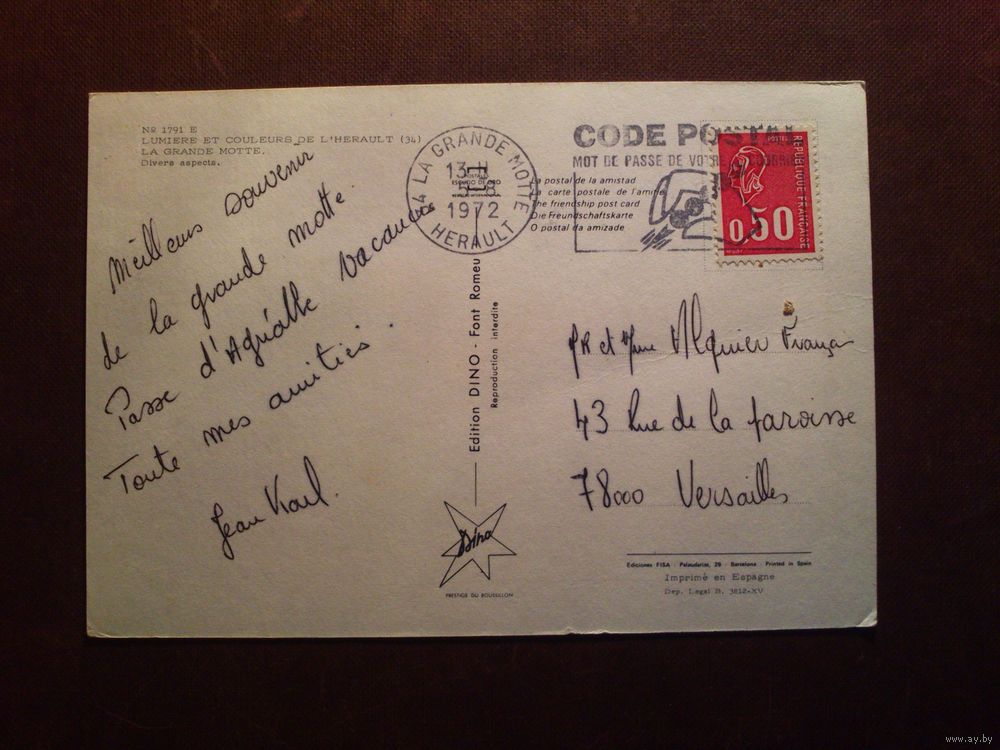 No 1791 E
LUMIERE ET COULEURS DE L'HERAULT (34)
LA GRANDE MOTTE.
Divers aspects.
Meilleurs souvenir
de la grande motte
Passe d'Agréable vacances
Toute mes amitiés.
Jean Karl.
34 LA GRANDE MOTTE
13
1972
HERAULT
CODE POSTAL
MOT DE PASSE DE VOTRE COURRIER
La postal de la amistad
La carte postale de l'amitié
The friendship post card
Die Freundschaftskarte
O postal da amizade
POSTES
REPUBLIQUE FRANÇAISE
0,50
Edition DINO - Font Romeu
Reproduction interdite
Dino
PRESTIGE DU ROUSSILLON
MR et Mme Alquier
43 Rue de la Paroisse
78000 Versailles
Ediciones FISA - Palaudarias, 26 - Barcelona Printed in Spain
Imprimé en Espagne
Dep. Legal B. 3812-XV
www.ay.by